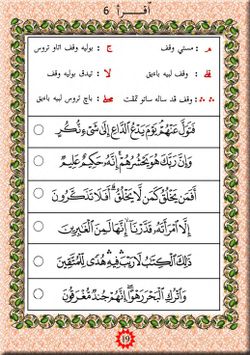 إقرأ 6
م : مستي وقف ج : بوليه وقف اتاو تروس
قلى : وقف لبيه باءيق لا : تيدق بوليه وقف
وقف قد ساله ساتو تمڤت صلى : باچ تروس لبيه باءيق
فَتَوَلَّ عَنْهُمْۘ يَوْمَ يَدْعُ الدَّاعِ إِلَىٰ شَىْءٍ نُّكُرٍ
وَإِنَّ رَبَّكَ هُوَ يَحْشُرُهُمْۚ إِنَّهُۥ حَكِيمٌ عَلِيمٌ
أَفَمَن يَخْلُقُ كَمَن لَّا يَخْلُقُۗ أَفَلَا تَذَكَّرُونَ
إِلَّا امْرَأَتَهُۥ قَدَّرْنَاۙ إِنَّهَا لَمِنَ الْغَٰبِرِينَ
ذَٰلِكَ الْكِتَٰبُ لَا رَيْبَۛ فِيهِۛ هُدًى لِّلْمُتَّقِينَ
وَاتْرُكِ الْبَحْرَ رَهْوًاۖ إِنَّهُمْ جُندٌ مُّغْرَقُونَ
19